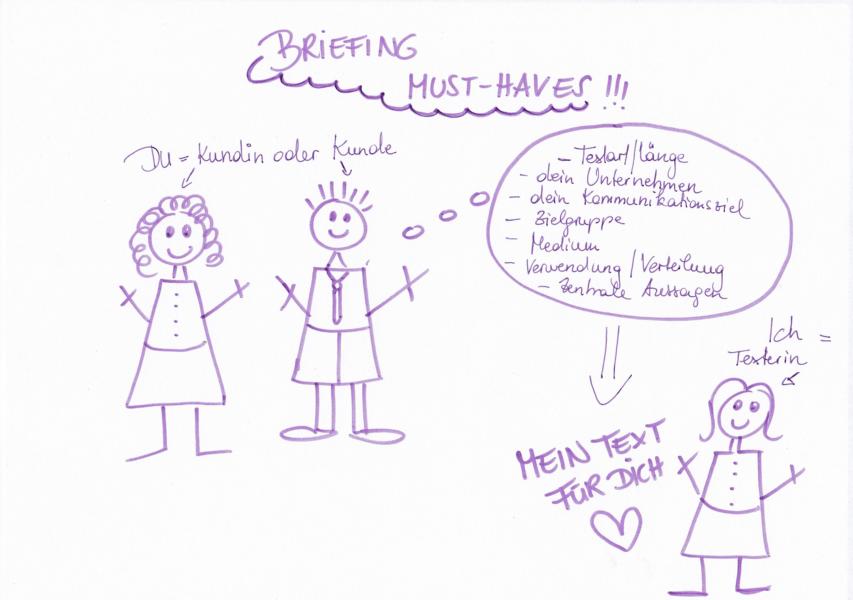 BRIEFING
MUST-HAVES !!!
Du = Kundin oder Kunde
- Textart/Länge
- dein Unternehmen
- dein Kommunikationsziel
- Zielgruppe
- Medium
- Verwendung/Verteilung
- Zentrale Aussagen
Ich =
Texterin
MEIN TEXT
FÜR DICH